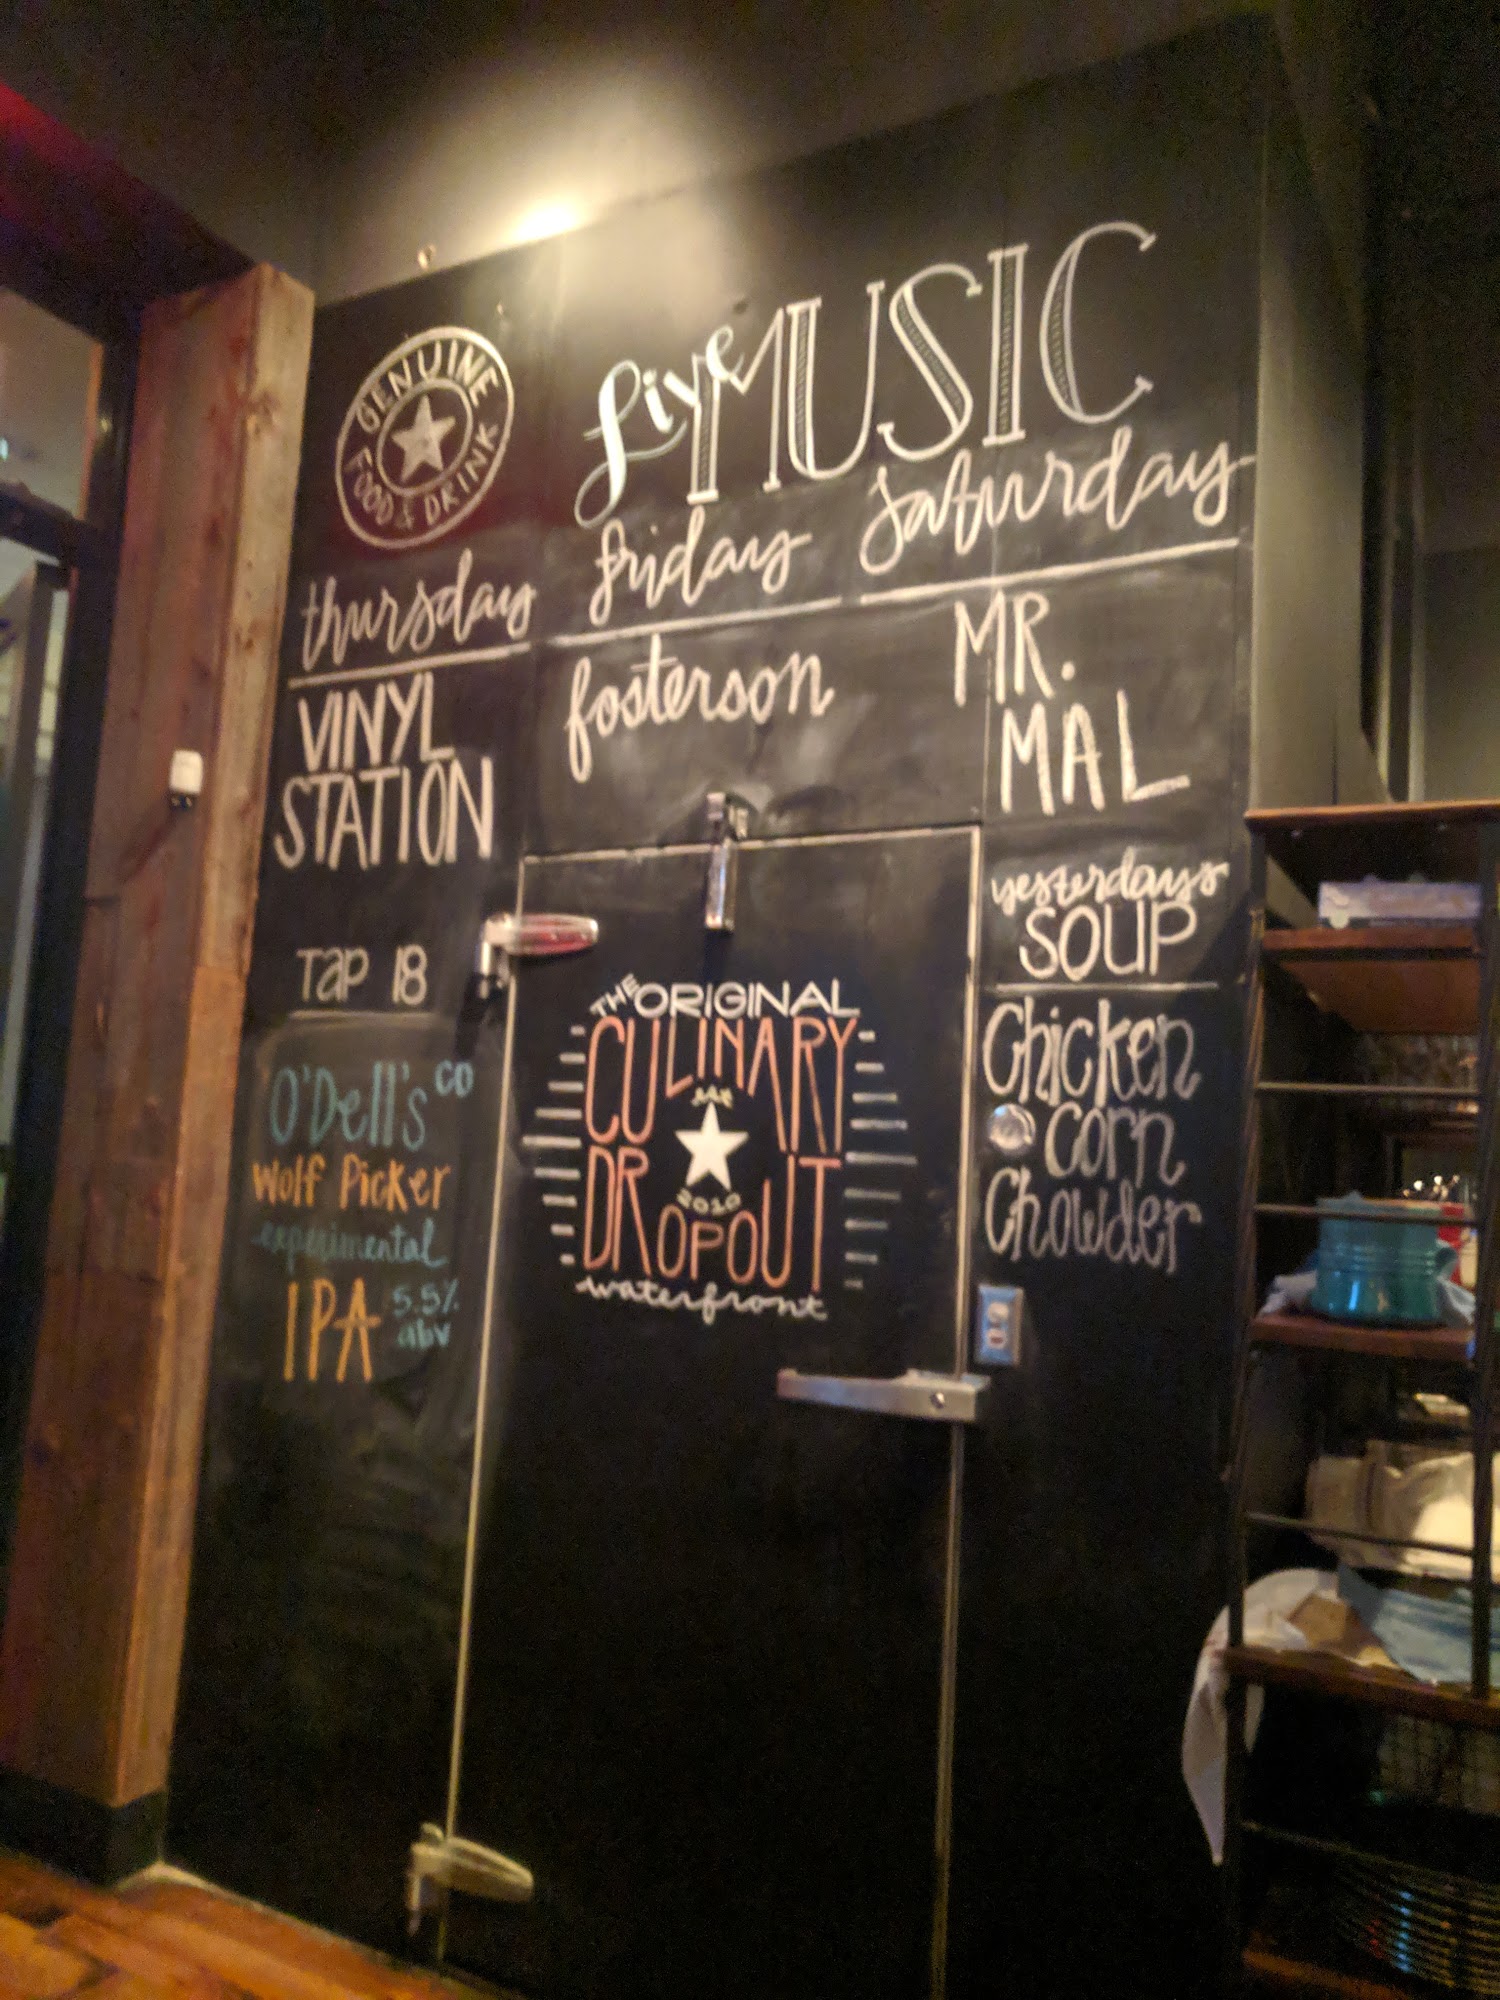 GENUINE
FOOD & DRINK
Live MUSIC
thursday
VINYL
STATION
friday
fosterson
saturday
MR.
MAL
Tap 18
O'Dell's co
Wolf Picker
experimental
IPA 5.5%
abv
THE ORIGINAL
CULINARY
EST
2010
DROPOUT
waterfront
yesterdays
SOUP
Chicken
Corn
Chowder